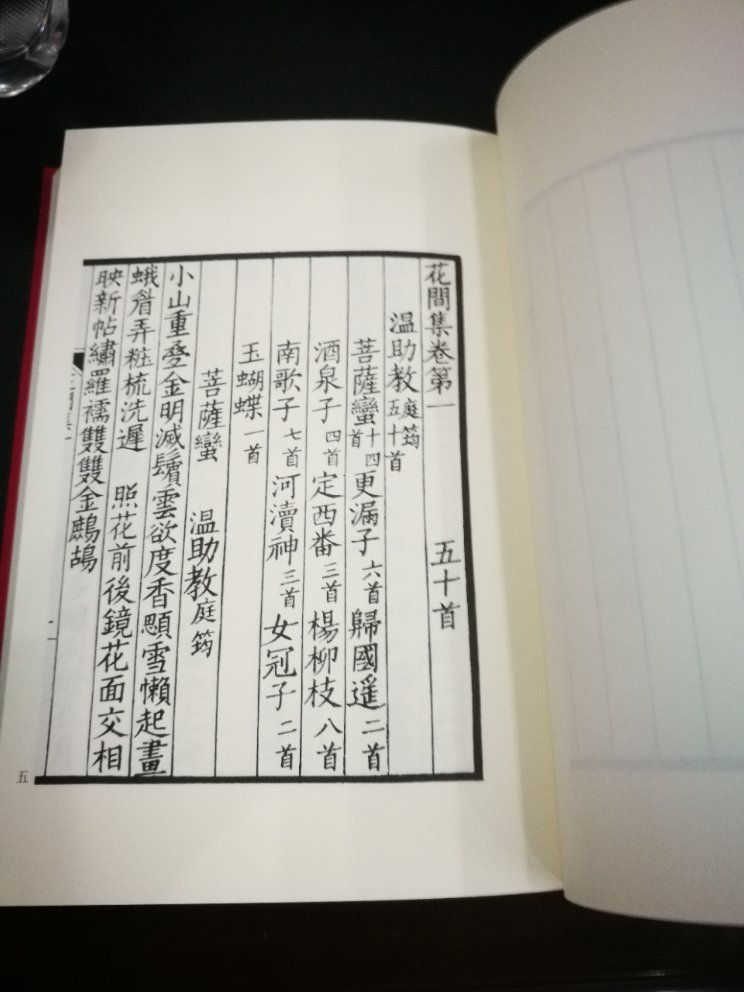 花間集卷第一　五十首
温助教庭筠五十首
菩薩蠻十四首 更漏子六首 歸國遥二首
酒泉子四首 定西番三首 楊柳枝八首
南歌子七首 河瀆神三首 女冠子二首
玉蝴蝶一首
菩薩蠻　温助教庭筠
小山重疊金明滅鬢雲欲度香顋雪懶起畫
蛾眉弄粧梳洗遲　照花前後鏡花面交相
映新帖繡羅襦雙雙金鷓鴣
五